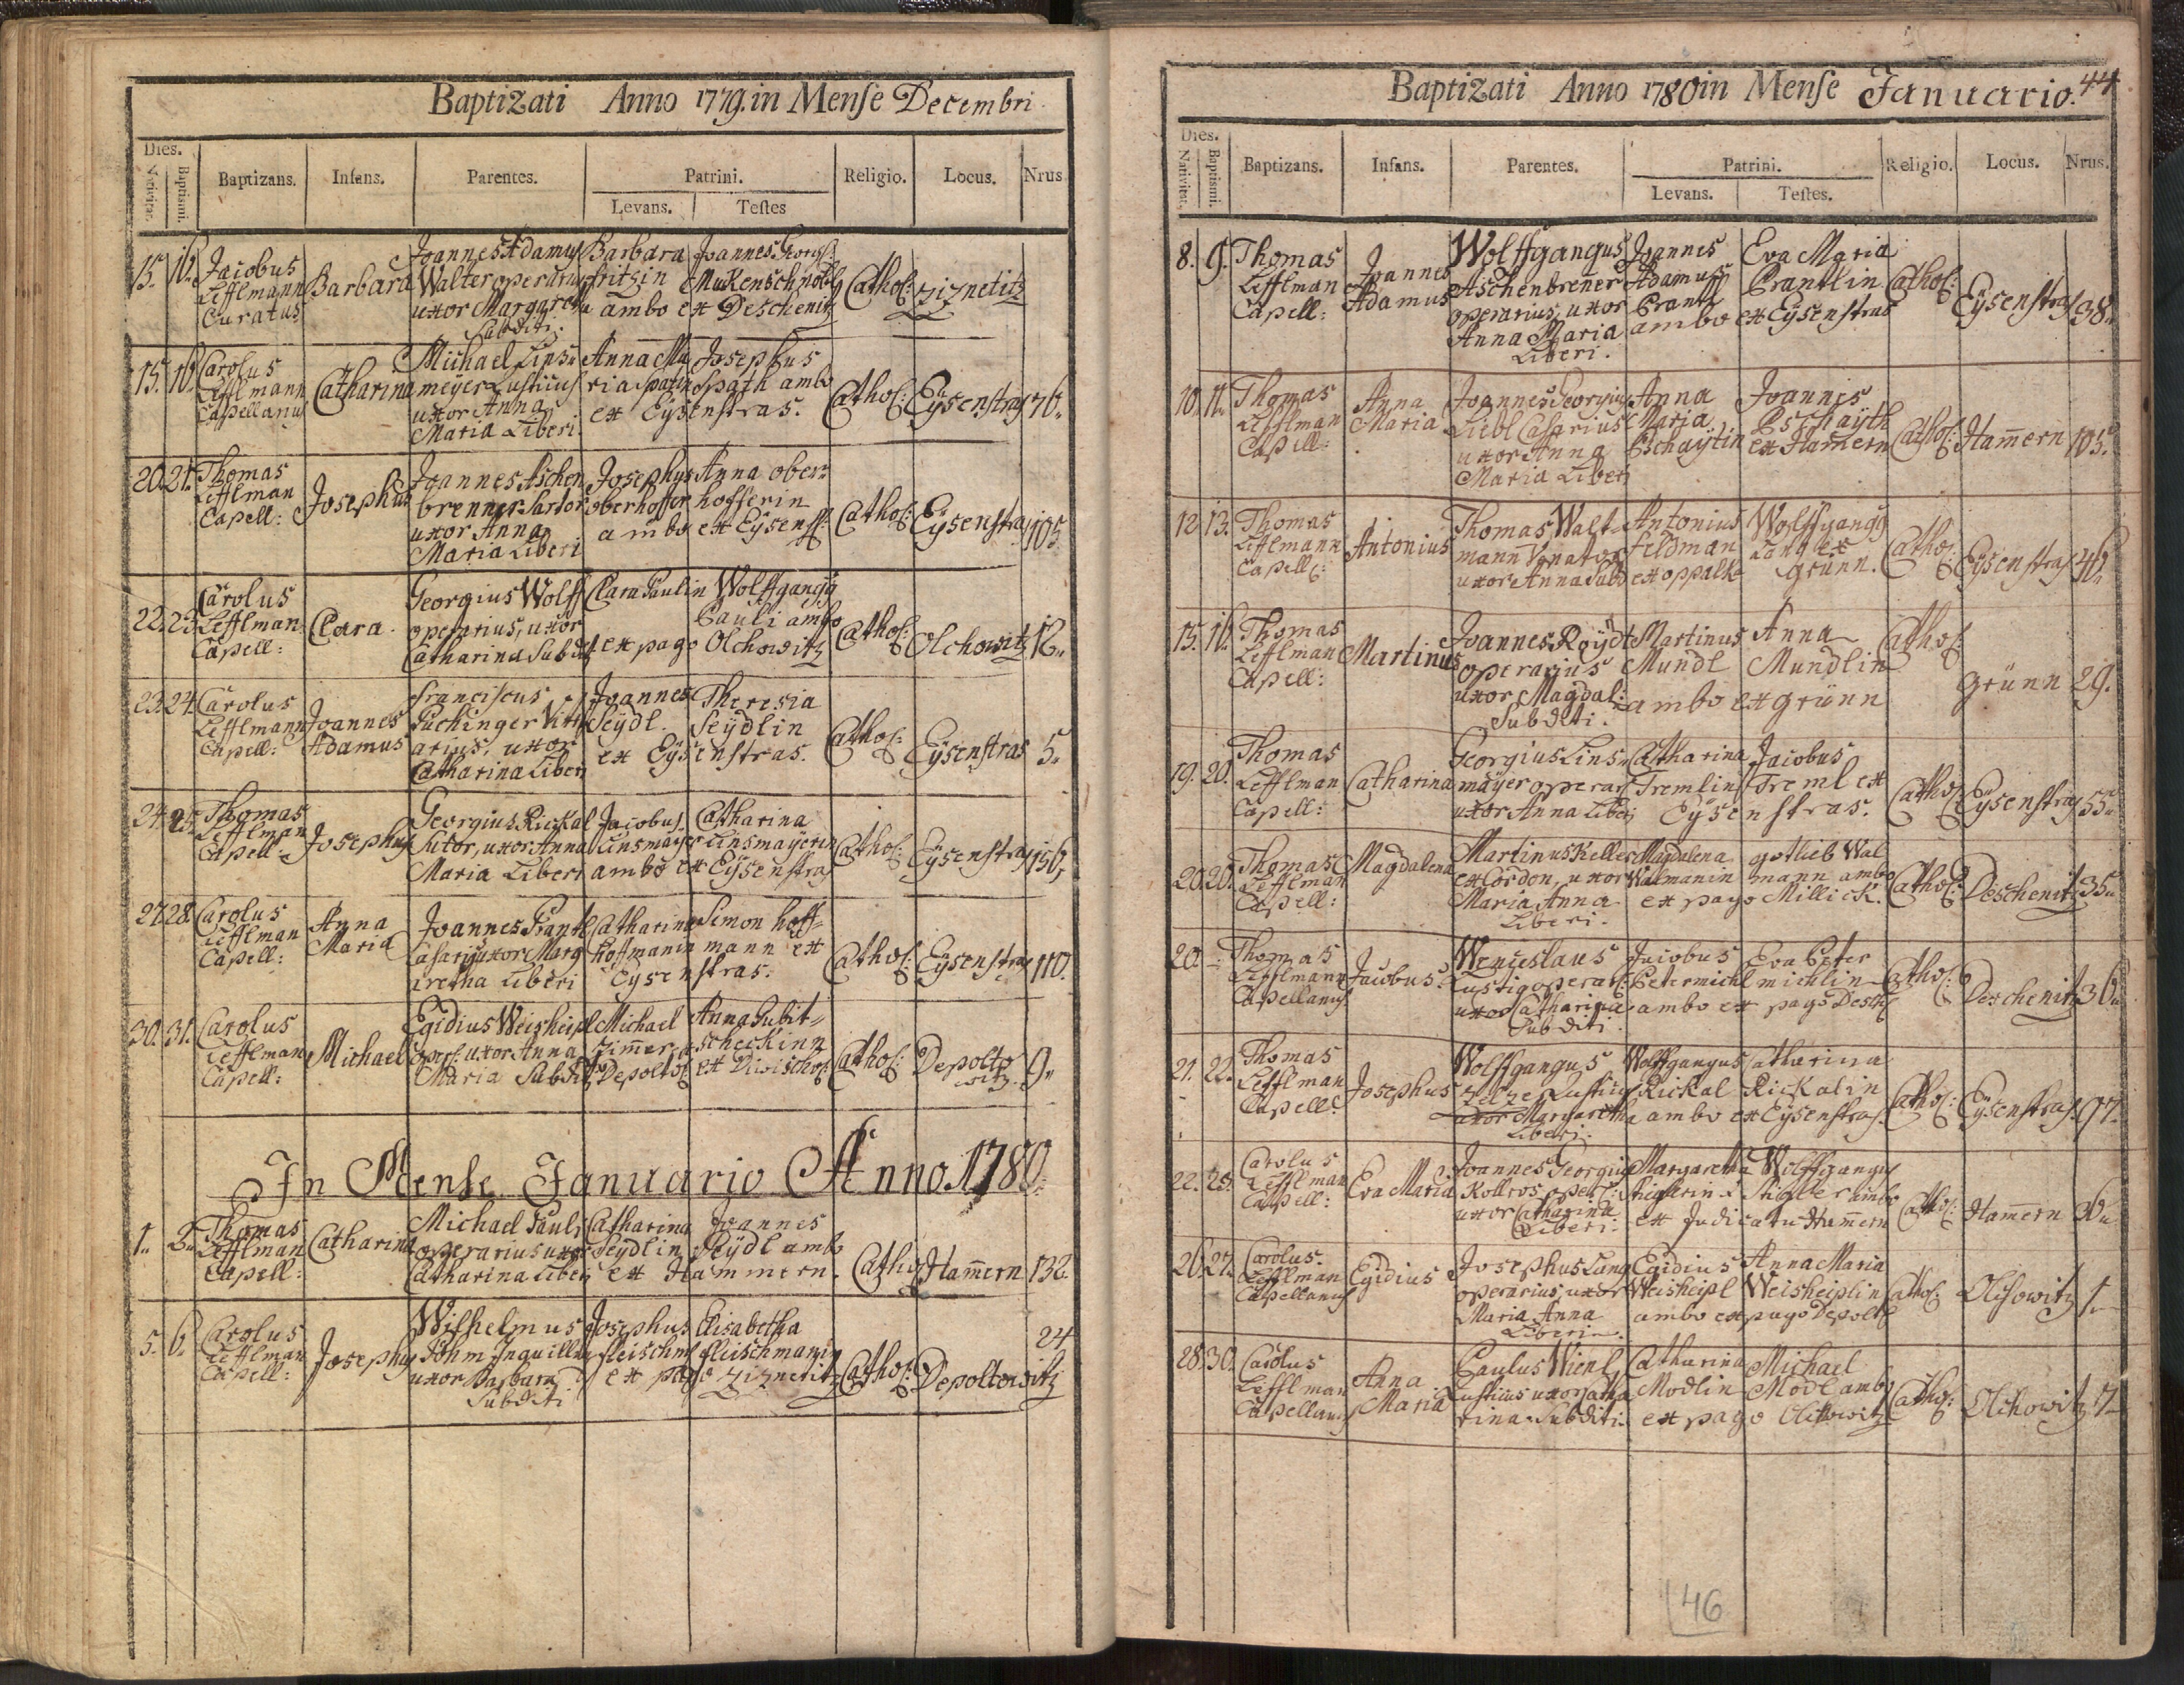 Baptizati Anno 1779. in Mense Decembri
Dies. Nativitat. Baptismi. Baptizans. Infans. Parentes. Patrini. Levans. Testes Religio. Locus. Nrus
15. 16. Jacobus Lefflmann Curatus
Barbara
Joannes Adamus
Walter operarius
uxor Margareta
Subditi.
Barbara
fritzin
Joannes Georg:
Mukenschnobl
ambo ex Deschenitz
Cathol: Ziznetitz
15. 16. Carolus Lefflmann Capellanus
Catharina
Michael Linsz
meyer Lusticus
uxor Anna
Maria Liberi.
Anna Ma
ria spatin
Josephus
Spath ambo
ex Eysenstras.
Cathol: Eysenstras 76.
20. 21. Thomas Lefflman Capell:
Josephus
Joannes Aschen
brenner Sartor
uxor Anna
Maria Liberi
Josephus
oberhoffer
Anna ober=
hofferin
ambo ex Eysenst:
Cathol: Eysenstras 105
22. 23. Carolus Lefflman Capell:
Clara.
Georgius Wolff
operarius, uxor
Catharina Subdit
Clara Paulin
Wolffgang
Pauli ambo
ex pago Olchowitz
Cathol: Olchowitz 12.
23. 24. Carolus Lefflmann Capell:
Joannes Adamus
franciscus
Puchinger Vitri
arius, uxor
Catharina Liberi
Joannes
Seydl
Theresia
Seydlin
ex Eysenstras.
Cathol: Eysenstras 5.
24. 25. Thomas Lefflman Capell:
Josephus
Georgius Rickal
Sutor, uxor Anna
Maria Liberi
Jacobus
Linsmayer
Catharina
Linsmayerin
ambo ex Eysenstras
Cathol: Eysenstras 156.
27. 28. Carolus Lefflman Capell:
Anna Maria
Joannes Prantl
Casarius uxor Marg
aretha Liberi
Catharina
Hoffmanin
Simon hoff=
mann ex
Eysenstras.
Cathol: Eysenstras 110.
30. 31. Carolus Lefflman Capell:
Michael
Egidius Weisheipl
oper: uxor Anna
Maria Subdit
Michael
Zimmer
Depolt:
Anna Subit=
scheckinn
ex Diwischo:
Cathol: Depoltowitz. 9.
In Mense Januario Anno. 1780.
1. 2. Thomas Lefflman Capell:
Catharina
Michael Pauli
operarius uxor
Catharina Liberi
Catharina
Seydlin
Joannes
Seydl ambo
ex Hammern.
Cathol: Ham̄ern 132.
5. 6. Carolus Lefflman Capell:
Josephus
Wilhelmus
Böhm Inquillin
uxor Barbara
Subditi
Josephus
fleischm:
Elisabetha
fleischmanin
ex pago Ziznetitz
Cathol: Depoltowitz 24
Baptizati Anno 1780 in Mense Januario. 44
Dies. Nativitat. Baptismi. Baptizans. Infans. Parentes. Patrini. Levans. Testes. Religio. Locus. Nrus.
8. 9. Thomas Lefflman Capell:
Joannes Adamus
Wolffgangus
Aschenbrener
operarius, uxor
Anna Maria
Liberi.
Joannes
Adamus
Prantl
Eva Maria
Prantlin
ambo ex Eysenstras
Cathol: Eysenstras 38.
10. 11. Thomas Lefflman Capell:
Anna Maria
Joannes Georgius
Liebl Casarius
uxor Anna
Maria Liberi
Anna
Maria
Pschaytin
Joannes
Pschayth
ex Ham̄ern
Cathol: Ham̄ern 105.
12. 13. Thomas Lefflmann Capell:
Antonius
Thomas Walt=
mann Venator
uxor Anna Subd
Antonius
feldman
ex oppalka
Wolffgang
Lang ex
grünn.
Cathol: Eysenstras 46.
15. 16. Thomas Lefflman Capell:
Martinus
Joannes Roydt
operarius
uxor Magdal:
Subditi.
Martinus
Mundl
Anna
Mundlin
ambo ex grünn
Cathol: grünn 29.
19. 20. Thomas Lefflman Capell:
Catharina
Georgius Lins=
mäyer operar:
uxor Anna Liberi
Catharina
Tremlin
Jacobus
Treml ex
Eysenstras.
Cathol: Eysenstras 55.
20. 20. Thomas Lefflman Capell:
Magdalena
Martinus Keller
ex Cordon, uxor
Maria Anna
Liberi.
Magdalena
Walmanin
gotlieb Wal
mann ambo
ex pago Millick.
Cathol: Deschenitz 35.
20. Thomas Lefflmann Capellanus
Jacobus
Wenceslaus
Lustig operar:
uxor Catharina
Subditi.
Jacobus
Petermichl
Eva Peter
michlin
ambo ex pago Desch:
Cathol: Deschenitz 36.
21. 22. Thomas Lefflman Capell:
Josephus
Wolffgangus
Zelzer Lusticus
uxor Margaretha
Liberi.
Wolffgangus
Rickal
Catharina
Rickalin
ambo ex Eysenstras.
Cathol: Eysenstras. 97.
22. 23. Carolus Lefflman Capell:
Eva Maria
Joannes Georgius
Kollros oper:
uxor Catharina
Liberi.
Margaretha
Stiglerin
Wolffgangus
Stigler ambo
ex Judicatu Ham̄ern
Cathol: Ham̄ern 30.
26. 27. Carolus. Lefflman Capellanus
Egidius
Josephus Lang
operarius, uxor
Maria Anna
Liberi.
Egidius
Weisheipl
Anna Maria
Weisheiplin
ambo ex pago Depolt:
Cathol: Olchowitz 1.
28. 30. Carolus Lefflman Capellanus
Anna Maria
Paulus Wienl
Lusticus uxor Catha
rina. Subditi.
Catharina
Modlin
Michael
Modl ambo
ex pago Olchowitz
Cathol: Olchowitz 7
46